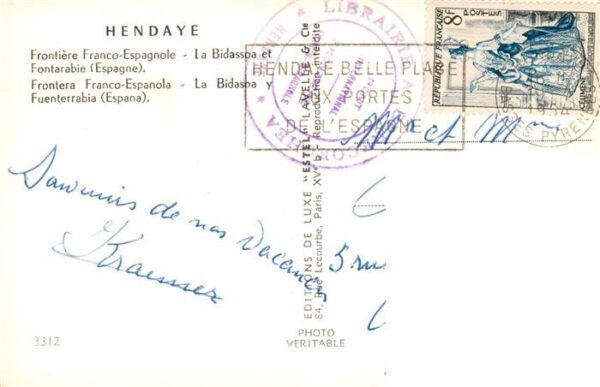 HENDAYE
Frontière Franco-Espagnole - La Bidassoa et
Fontarabie (Espagne).
Frontera Franco-Espanola - La Bidasoa y
Fuenterrabia (Espana).
Souvenirs de nos Vacances
3312
EDITIONS DE LUXE "ESTEL" LAVELLE & Cie
84, Rue Lecourbe, Paris, XVe - Reproduction interdite
PHOTO
VERITABLE
LIBRAIRIE
HENDAYE BELLE PLAGE
AUX PORTES
DE L'ESPAGNE
8F
POSTES
REPUBLIQUE FRANÇAISE
1954
PYRENEES
Mr et Mme
5 rue